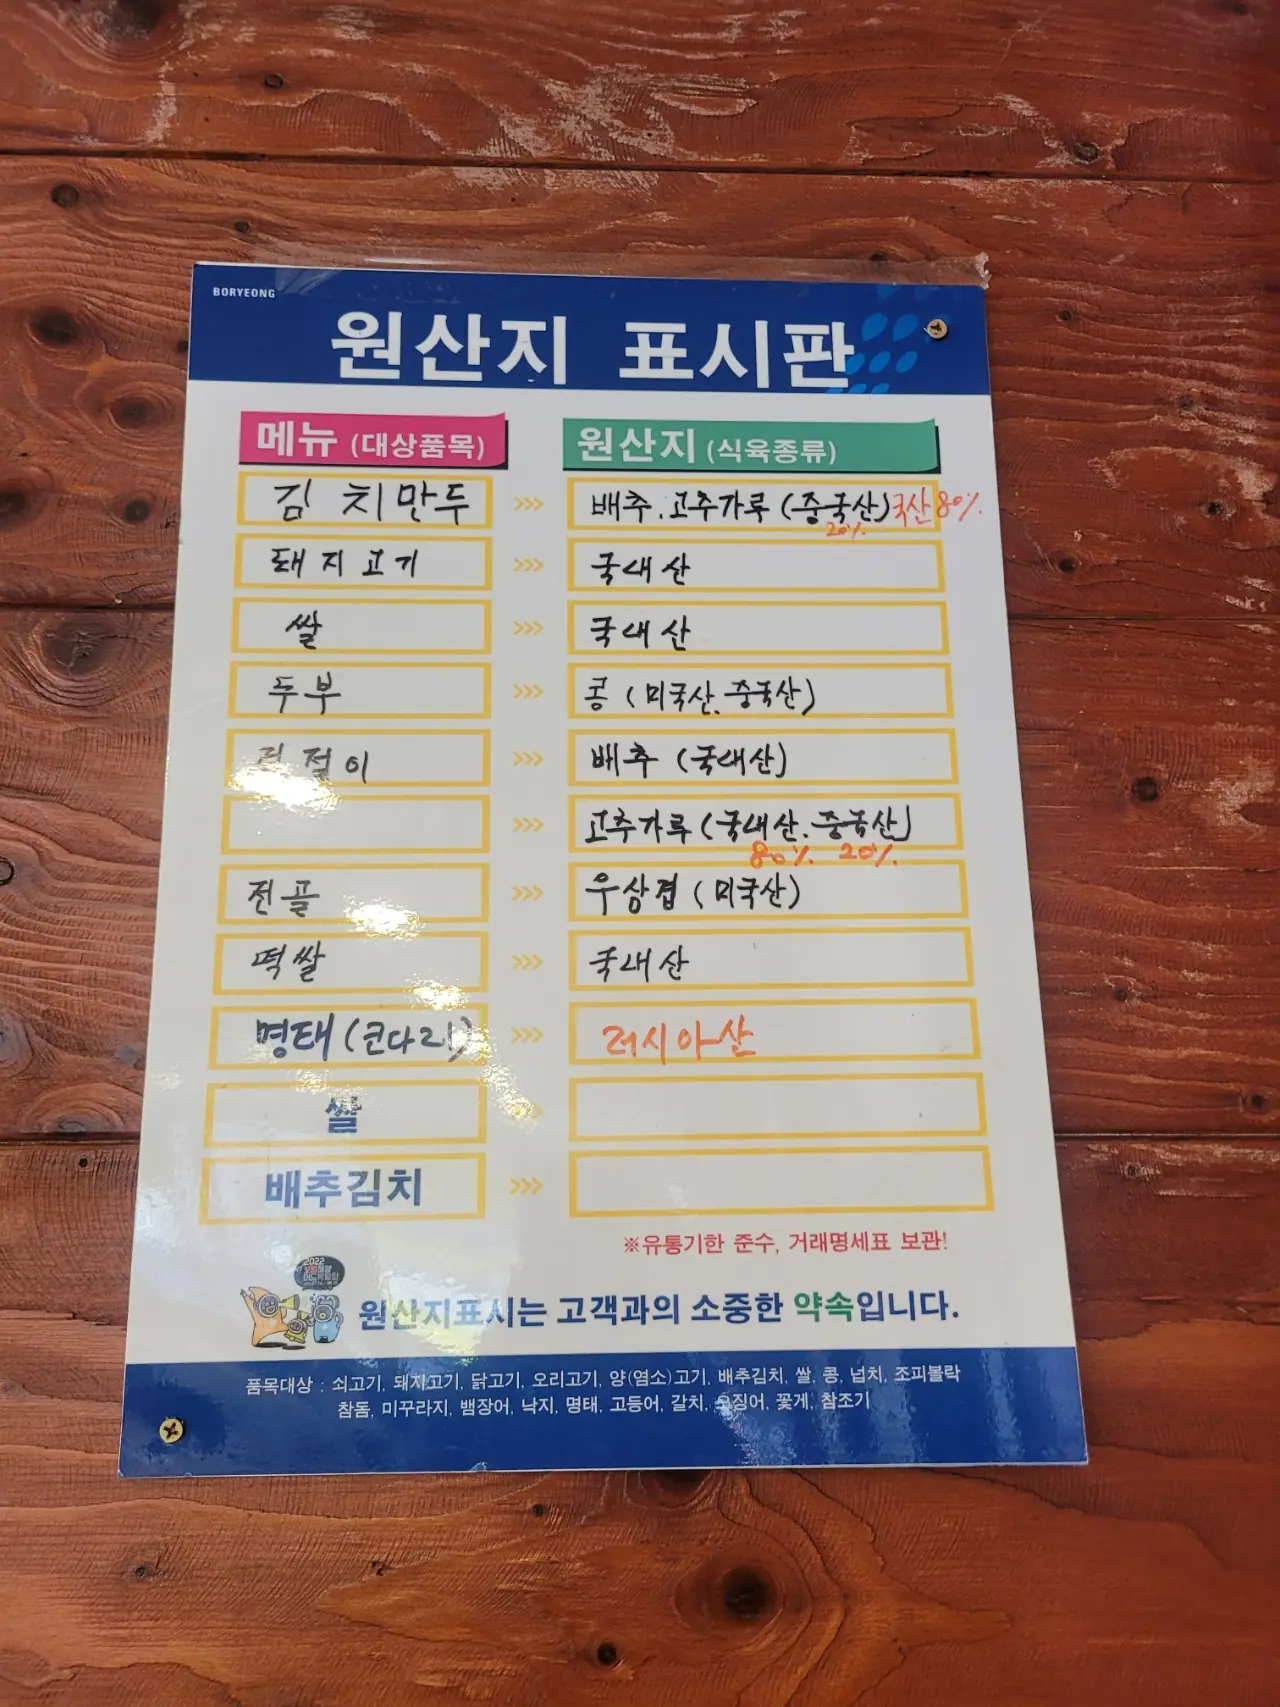 BORYEONG
원산지 표시판
메뉴 (대상품목) 원산지 (식육종류)
김치만두 >>> 배추.고추가루 (중국산) 국산 80%.
20%.
돼지고기 >>> 국내산
쌀 >>> 국내산
두부 >>> 콩 (미국산, 중국산)
겉절이 >>> 배추 (국내산)
>>> 고추가루 (국내산.중국산)
80%. 20%.
전골 >>> 우삼겹 (미국산)
떡쌀 >>> 국내산
명태 (코다리) >>> 러시아산
쌀 >>>
배추김치 >>>
※유통기한 준수, 거래명세표 보관!
2022
원산지표시는 고객과의 소중한 약속입니다.
품목대상 : 쇠고기, 돼지고기, 닭고기, 오리고기, 양(염소)고기, 배추김치, 쌀, 콩, 넙치, 조피볼락
참돔, 미꾸라지, 뱀장어, 낙지, 명태, 고등어, 갈치, 오징어, 꽃게, 참조기